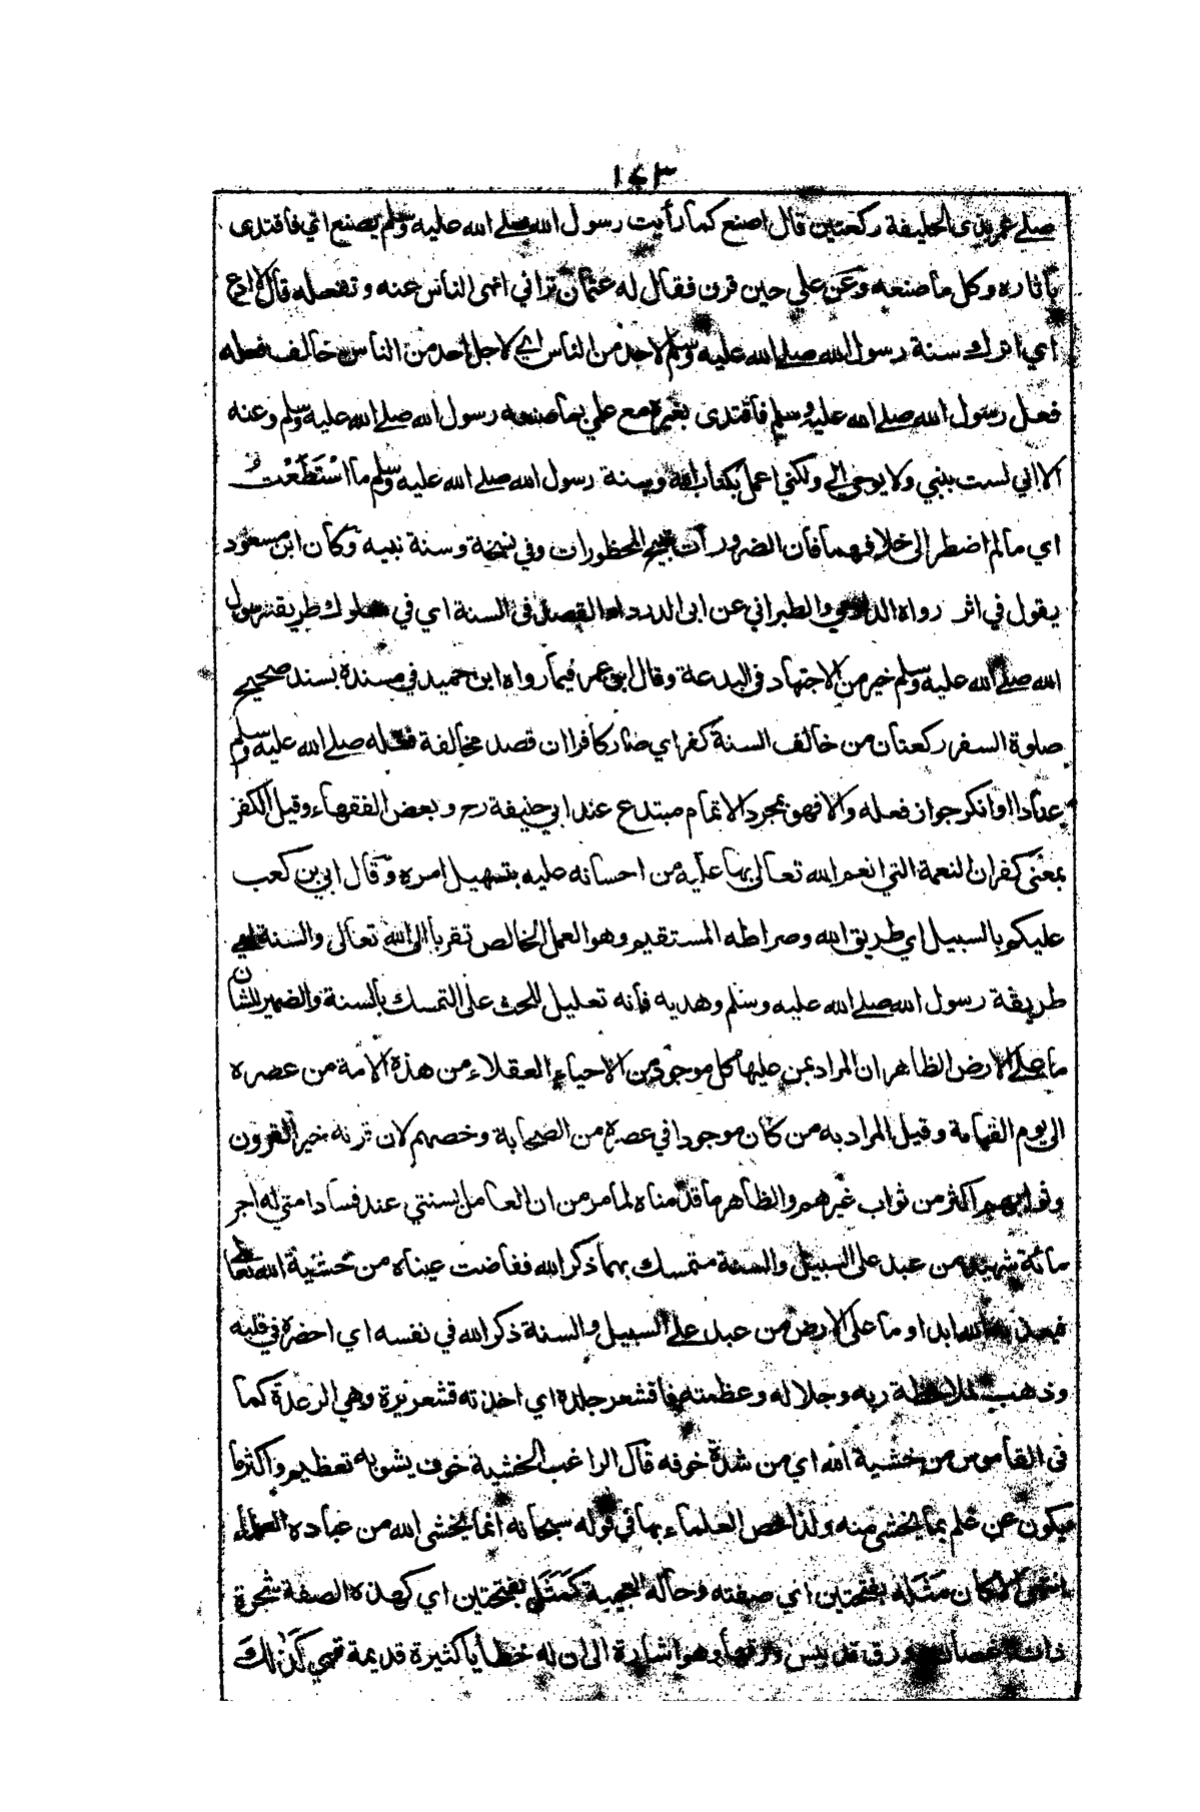 ١٤٣
صلے عمر بذى الحليفة ركعتين قال اصنع كما رأيت رسول الله صلے الله عليه وسلم يصنع اي فاقتدى
بأثاره وكل ما صنعه وعن علي حين قرن فقال له عثمان تراني انهى الناس عنه وتفعله قال لم ادع
اي اترك سنة رسول الله صلے الله عليه وسلم لاحد من الناس اي لاجل احد من الناس خالف فعله
فعل رسول الله صلے الله عليه وسلم فاقتدى بغيره مع علمي بما صنعه رسول الله صلے الله عليه وسلم وعنه
الا اني لست بنبي ولا يوحى الي ولكني اعمل بكتاب الله وسنة رسول الله صلے الله عليه وسلم ما استَطَعْتُ
اي ما لم اضطر الى خلافهما فان الضرورات تبيح المحظورات وفي نسخة وسنة نبيه وكان ابن مسعود
يقول في اثر رواه الدارمي والطبراني عن ابى الدرداء القصد فى السنة اي في سلوك طريقة رسول
الله صلے الله عليه وسلم خير من الاجتهاد فى البدعة وقال ابن عمر فيما رواه ابن حميد في مسنده بسند صحيح
صلوة السفر ركعتان من خالف السنة كفر اي صار كافرا ان قصد مخالفة فعله صلے الله عليه وسلم
عنادا او انكر جواز فعله والا فهو بمجرد الاتمام مبتدع عند ابي حنيفة رح وبعض الفقهاء وقيل الكفر
بمعنى كفران النعمة التي انعم الله تعالى بها عليه من احسانه عليه بتسهيل امره وقال ابي بن كعب
عليكم بالسبيل اي طريق الله وصراطه المستقيم وهو العمل الخالص تقربا الى الله تعالى والسنة اي
طريقة رسول الله صلے الله عليه وسلم وهديه فانه تعليل للحث على التمسك بالسنة والضمير للشان
ما على الارض الظاهر ان المراد بمن عليها كل موجود من الاحياء العقلاء من هذه الامة من عصره
الى يوم القيامة وقيل المراد به من كان موجودا في عصره من الصحابة وخصهم لان قرنه خير القرون
وثوابهم اكثر من ثواب غيرهم والظاهر ما قدمناه لما مر من ان العامل بسنتي عند فساد امتي له اجر
مائة شهيد من عبد على السبيل والسنة متمسك بهما ذكر الله ففاضت عيناه من خشية الله تعالى
فيعذبه الله ابدا وما على الارض من عبد على السبيل والسنة ذكر الله في نفسه اي احضره في قلبه
وذهب لملاحظة ربه وجلاله وعظمته فاقشعر جلده اي اخذته قشعريرة وهي الرعدة كما
فى القاموس من خشية الله اي من شدة خوفه قال الراغب الخشية خوف يشوبه تعظيم واكثر ما
يكون عن علم بما يخشى منه ولذا خص العلماء بها في قوله سبحانه انما يخشى الله من عباده العلماء
انتهى الا كان مَثَله بفتحتين اي صفته وحاله العجيبة كَمَثَل بفتحتين اي كهذه الصفة شجرة
ذات اغصان وورق قد يبس ورقها وهو اشارة الى ان له خطأيا كثيرة قديمة فهي كذلك